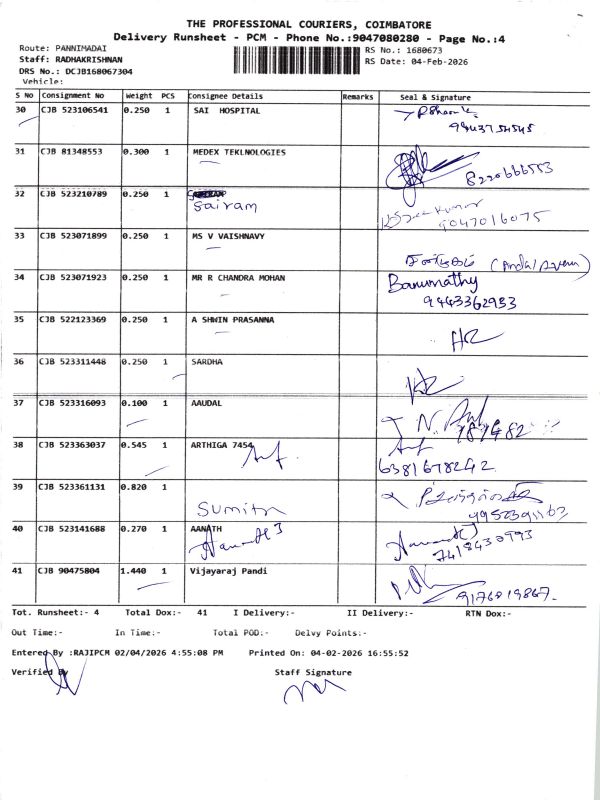 THE PROFESSIONAL COURIERS, COIMBATORE
Delivery Runsheet - PCM - Phone No.:9047080280 - Page No.:4
Route: PANNIMADAI
RS No.: 1680673
Staff: RADHAKRISHNAN
RS Date: 04-Feb-2026
DRS No.: DCJB168067304
Vehicle:
S No Consignment No Weight PCS Consignee Details Remarks Seal & Signature
30 CJB 523106541 0.250 1 SAI HOSPITAL
9943754545
31 CJB 81348553 0.300 1 MEDEX TEKLNOLOGIES
8220666553
32 CJB 523210789 0.250 1
Sairam
9047016075
33 CJB 523071899 0.250 1 MS V VAISHNAVY
34 CJB 523071923 0.250 1 MR R CHANDRA MOHAN Banumathy
9443362953
35 CJB 522123369 0.250 1 A SHWIN PRASANNA
36 CJB 523311448 0.250 1 SARDHA
37 CJB 523316093 0.100 1 AAUDAL
38 CJB 523363037 0.545 1 ARTHIGA 7454
6381678242
39 CJB 523361131 0.820 1
Sumitra
40 CJB 523141688 0.270 1 AANATH
7418430993
41 CJB 90475804 1.440 1 Vijayaraj Pandi
9176819867.
Tot. Runsheet:- 4 Total Dox:- 41 I Delivery:- II Delivery:- RTN Dox:-
Out Time:- In Time:- Total POD:- Delvy Points:-
Entered By :RAJIPCM 02/04/2026 4:55:08 PM Printed On: 04-02-2026 16:55:52
Verified By Staff Signature